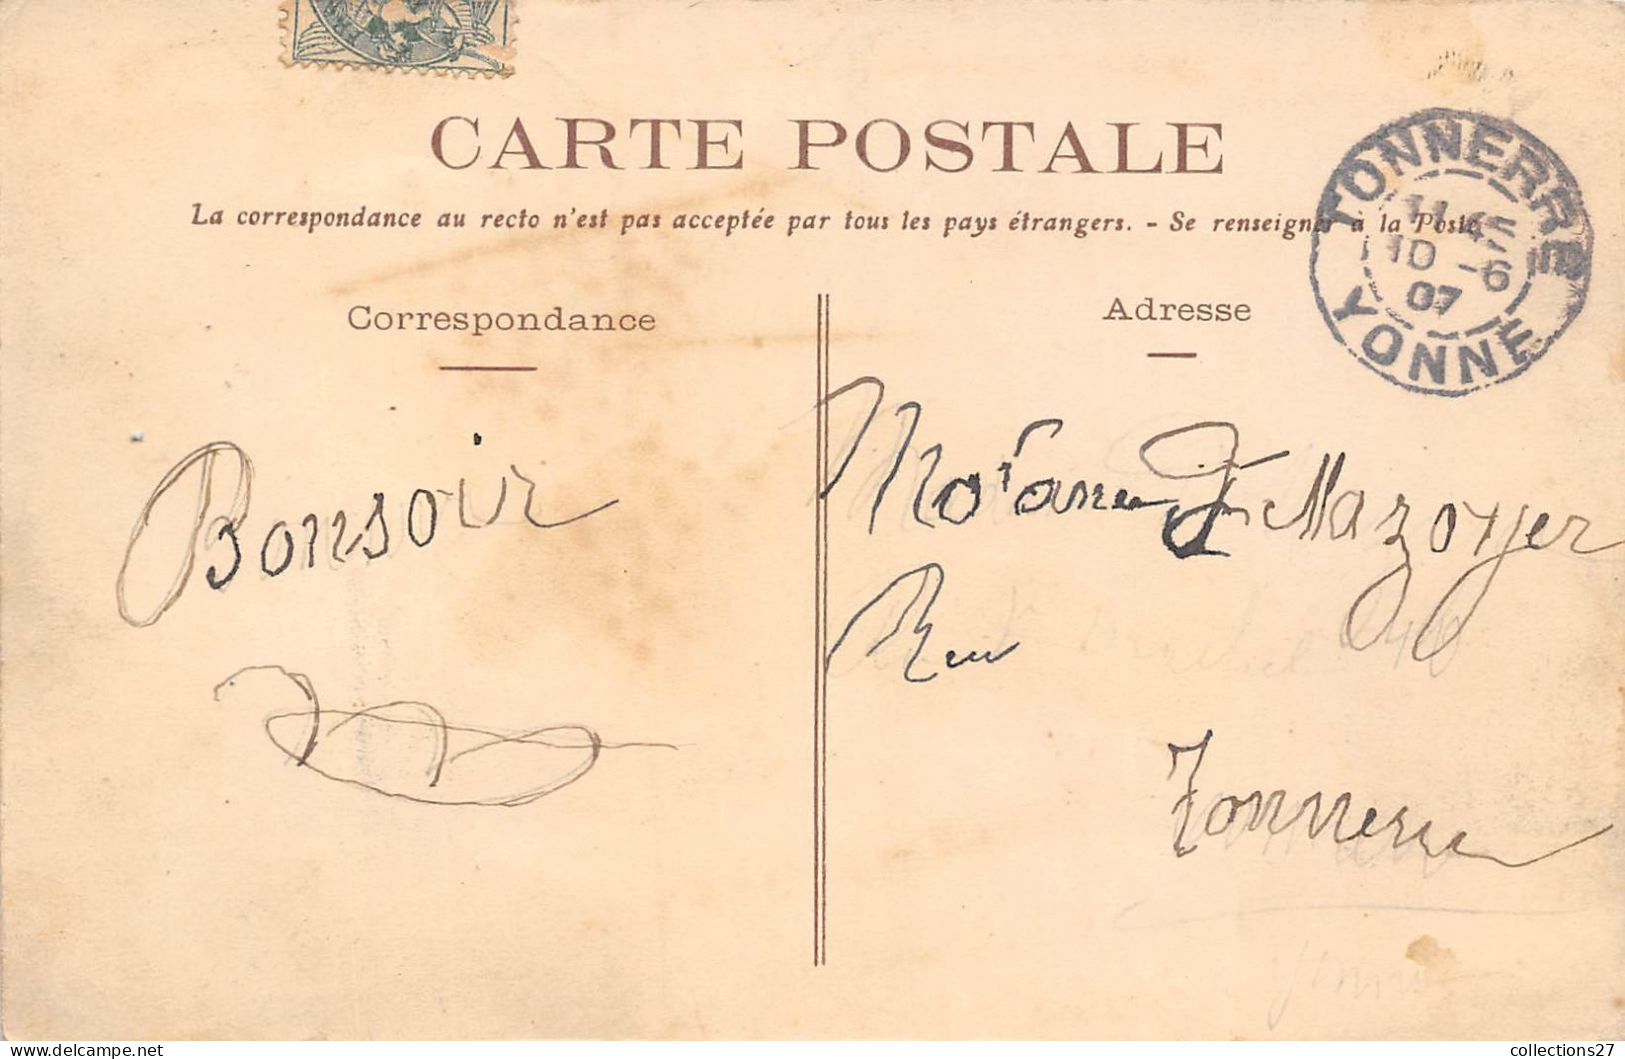 CARTE POSTALE
La correspondance au recto n'est pas acceptée par tous les pays étrangers. - Se renseigner à la Poste
TONNERRE
10 -6
07
YONNE
Correspondance
Adresse
Bonsoir
Madame F Mazoyer
Rue
Tonnerre
Yonne
collections27